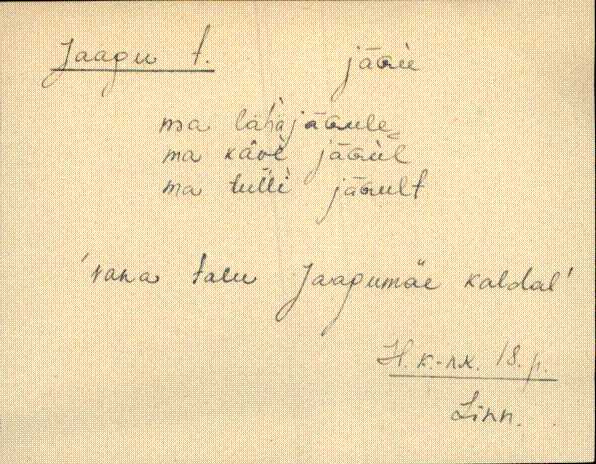 Jaagu t. jāǫu
ma lähäjāǫule
ma kāvè jāǫul
ma tulli jāǫult
'vana talu Jaagumäe kaldal'
H. k.-nk. 18. p.
Linn.